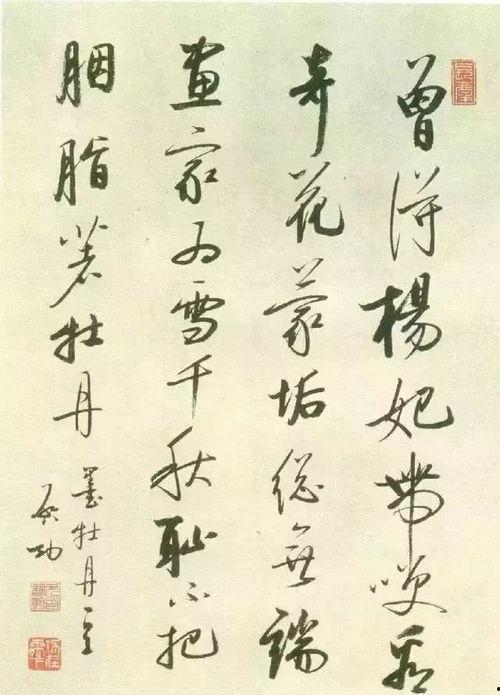 曾得楊妃帶笑看
奇花蒙垢總無端
畫家為雪千秋恥不把
胭脂著牡丹
墨牡丹一首
啟功